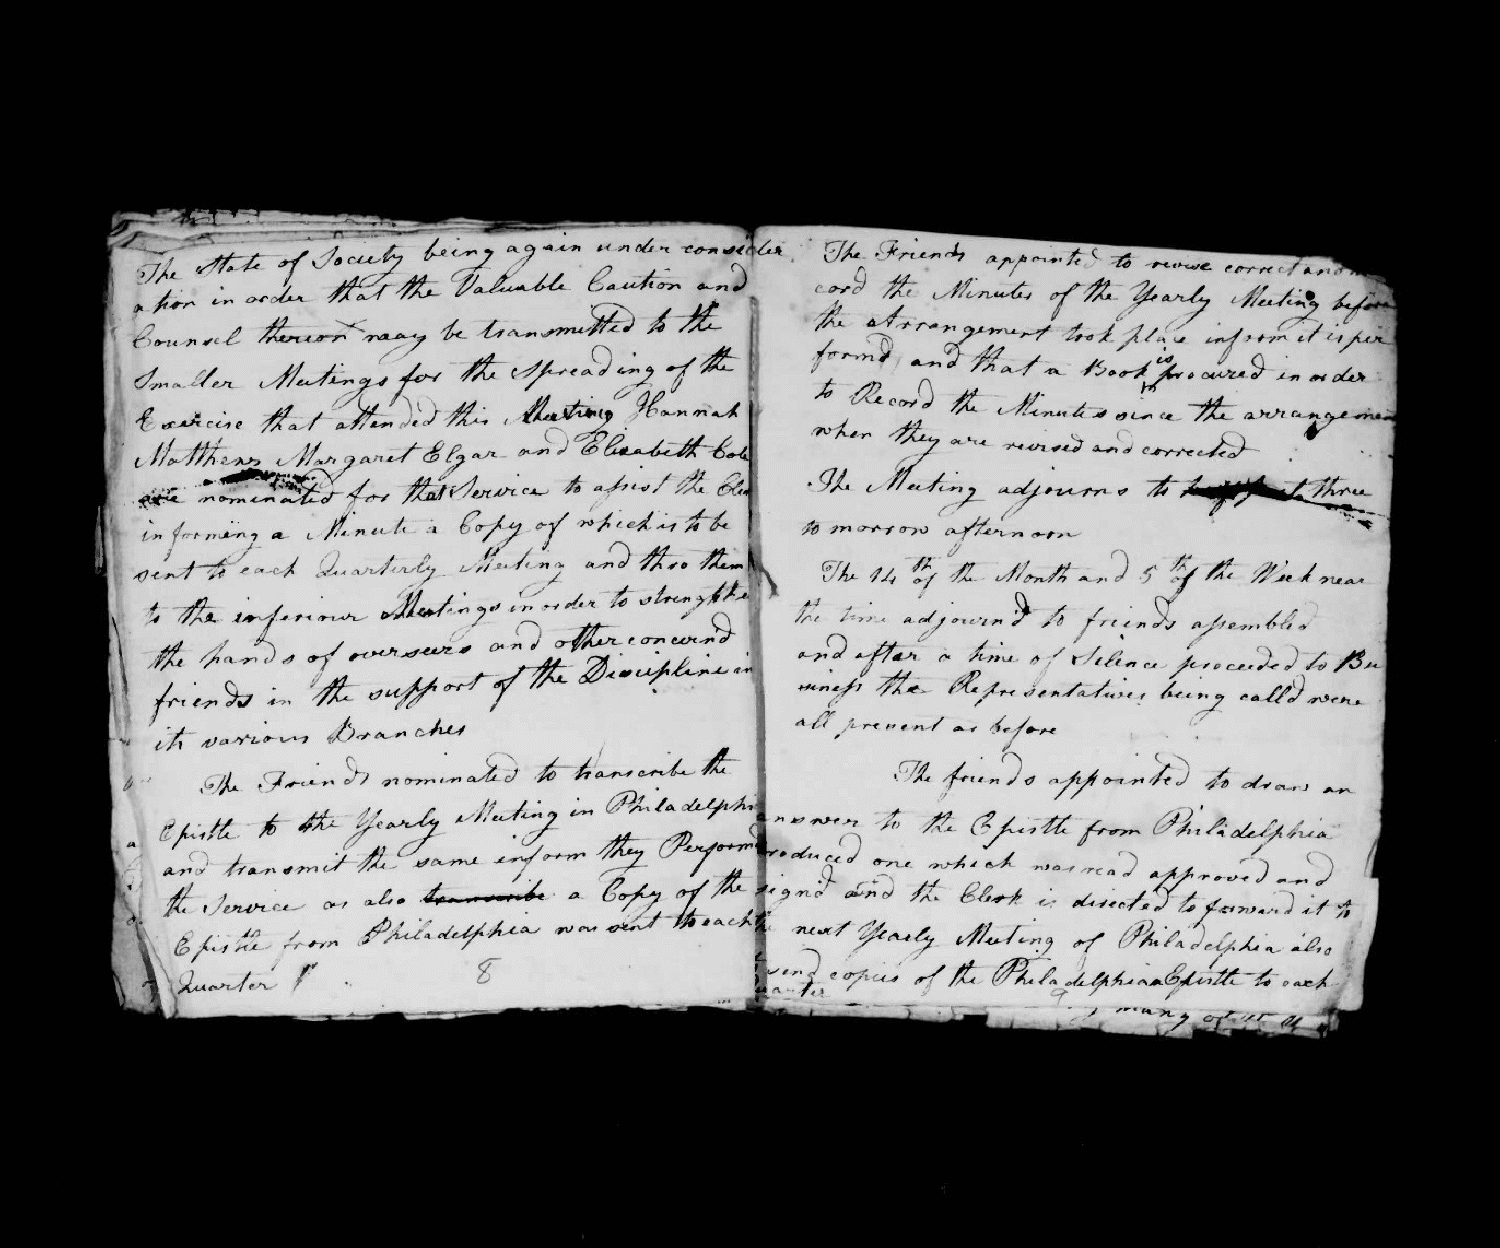 The State of Society being again under consider
ation in order that the Valuable Caution and
Counsel thereon may be transmitted to the
Smaller Meetings for the Spreading of the
Exercise that attended this Meeting Hannah
Matthews Margaret Elgar and Elisabeth Cole
are nominated for that Service to assist the Cler
in forming a Minute a Copy of which is to be
sent to each Quarterly Meeting and thro them
to the inferiour Meetings in order to strengthe
the hands of overseers and other concernd
friends in the support of the Discipline in
its various Branches
The Friends nominated to transcribe the
Epistle to the Yearly Meeting in Philadelphi
and transmit the same inform they Performd
the Service as also transcribe a Copy of the
Epistle from Philadelphia was sent to each
Quarter
8
The Friends appointed to revise correct and
cord the Minutes of the Yearly Meeting before
the Arrangement took place inform it is per
formd and that a Book is procured in order
to Record the Minutes since the arrangemen
when they are revised and corrected
The Meeting adjourns to three
to morrow afternoon
The 14th of the Month and 5th of the Week near
the time adjournd to friends assembled
and after a time of Silence proceeded to Bu
siness the Representatives being calld were
all present as before
The friends appointed to draw an
answer to the Epistle from Philadelphia
produced one which was read approved and
signd and the Clerk is directed to forward it to
the next Yearly Meeting of Philadelphia also
send copies of the Philadelphia Epistle to each
Quarter
many of